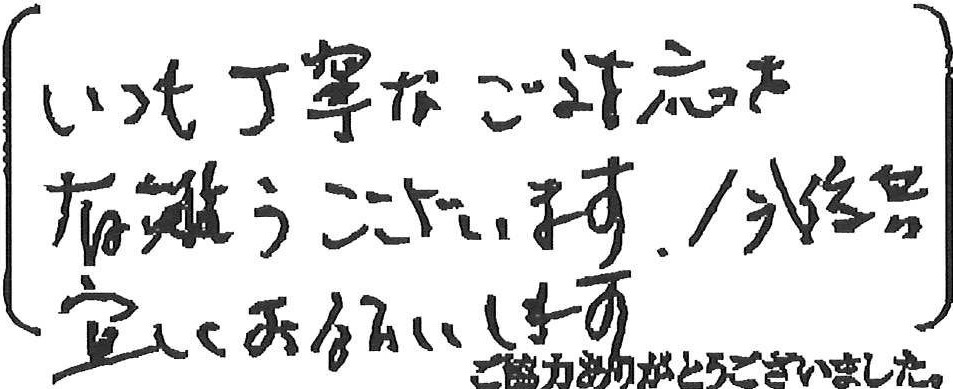 いつも丁寧なご対応を
有難うございます。今後共
宜しくお願いします
ご協力ありがとうございました。